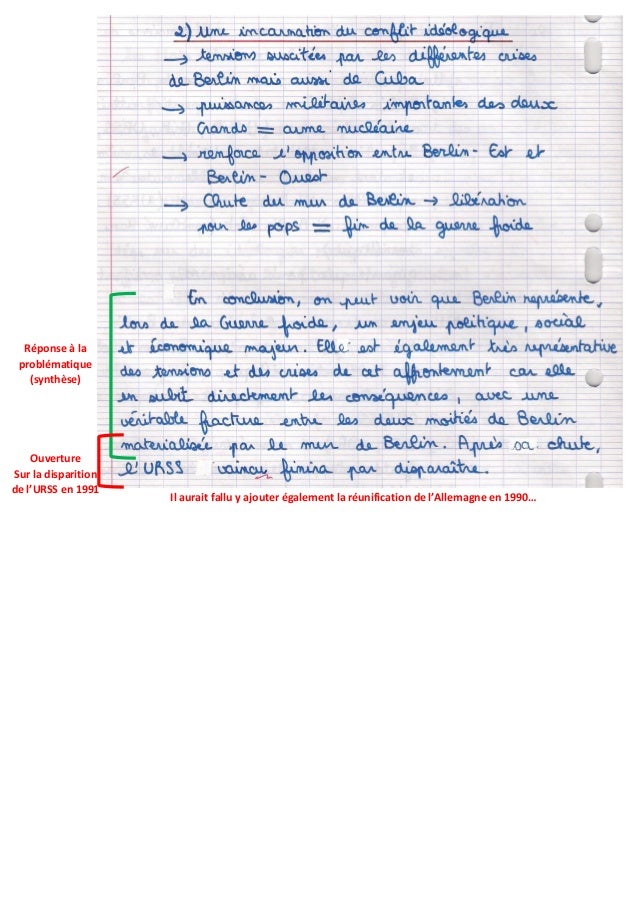 2) Une incarnation du conflit idéologique
→ tensions suscitées par les différentes crises
de Berlin mais aussi de Cuba
→ puissances militaires importantes des deux
Grands = arme nucléaire
→ renforce l'opposition entre Berlin-Est et
Berlin-Ouest
→ Chute du mur de Berlin → libération
pour les pops = fin de la guerre froide
En conclusion, on peut voir que Berlin représente,
lors de la Guerre froide, un enjeu politique, social
et économique majeur. Elle est également très représentative
des tensions et des crises de cet affrontement car elle
en subit directement les conséquences, avec une
véritable fracture entre les deux moitiés de Berlin
materialisée par le mur de Berlin. Après sa chute,
l'URSS vaincu finira par disparaître.
Réponse à la
problématique
(synthèse)
Ouverture
Sur la disparition
de l'URSS en 1991
Il aurait fallu y ajouter également la réunification de l'Allemagne en 1990…